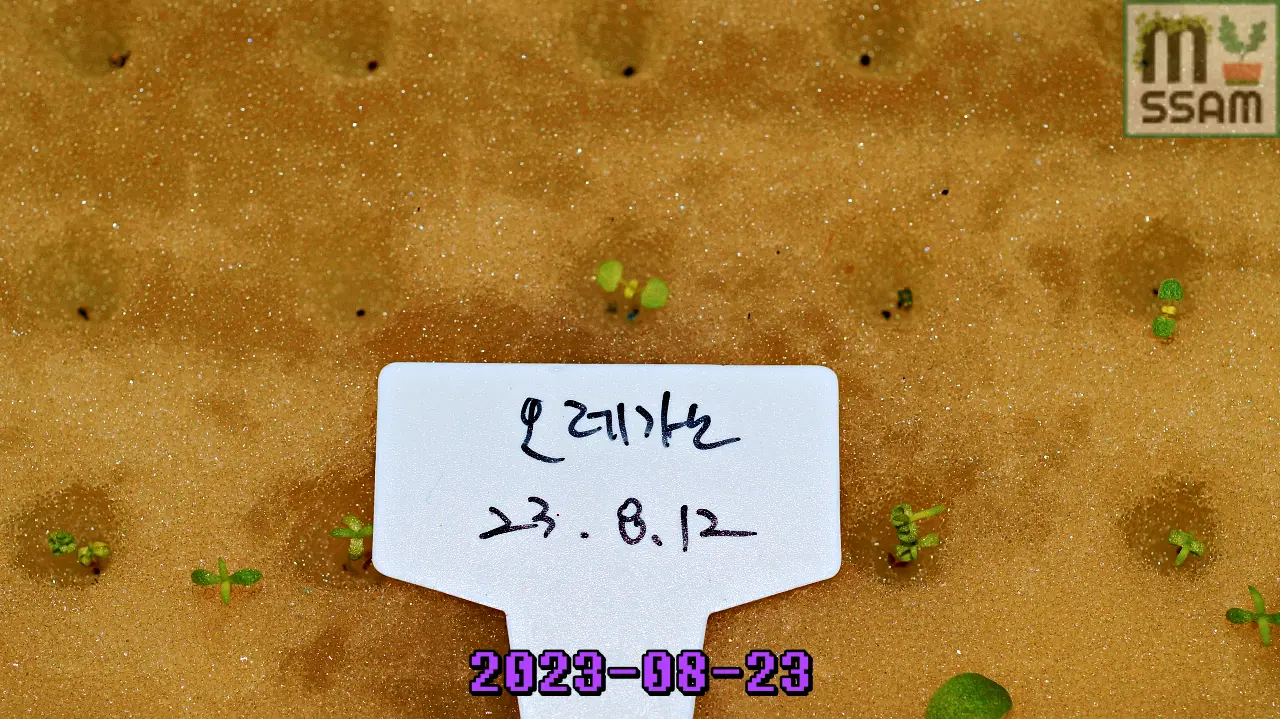 M
SSAM
오레가노
23.8.12
2023-08-23